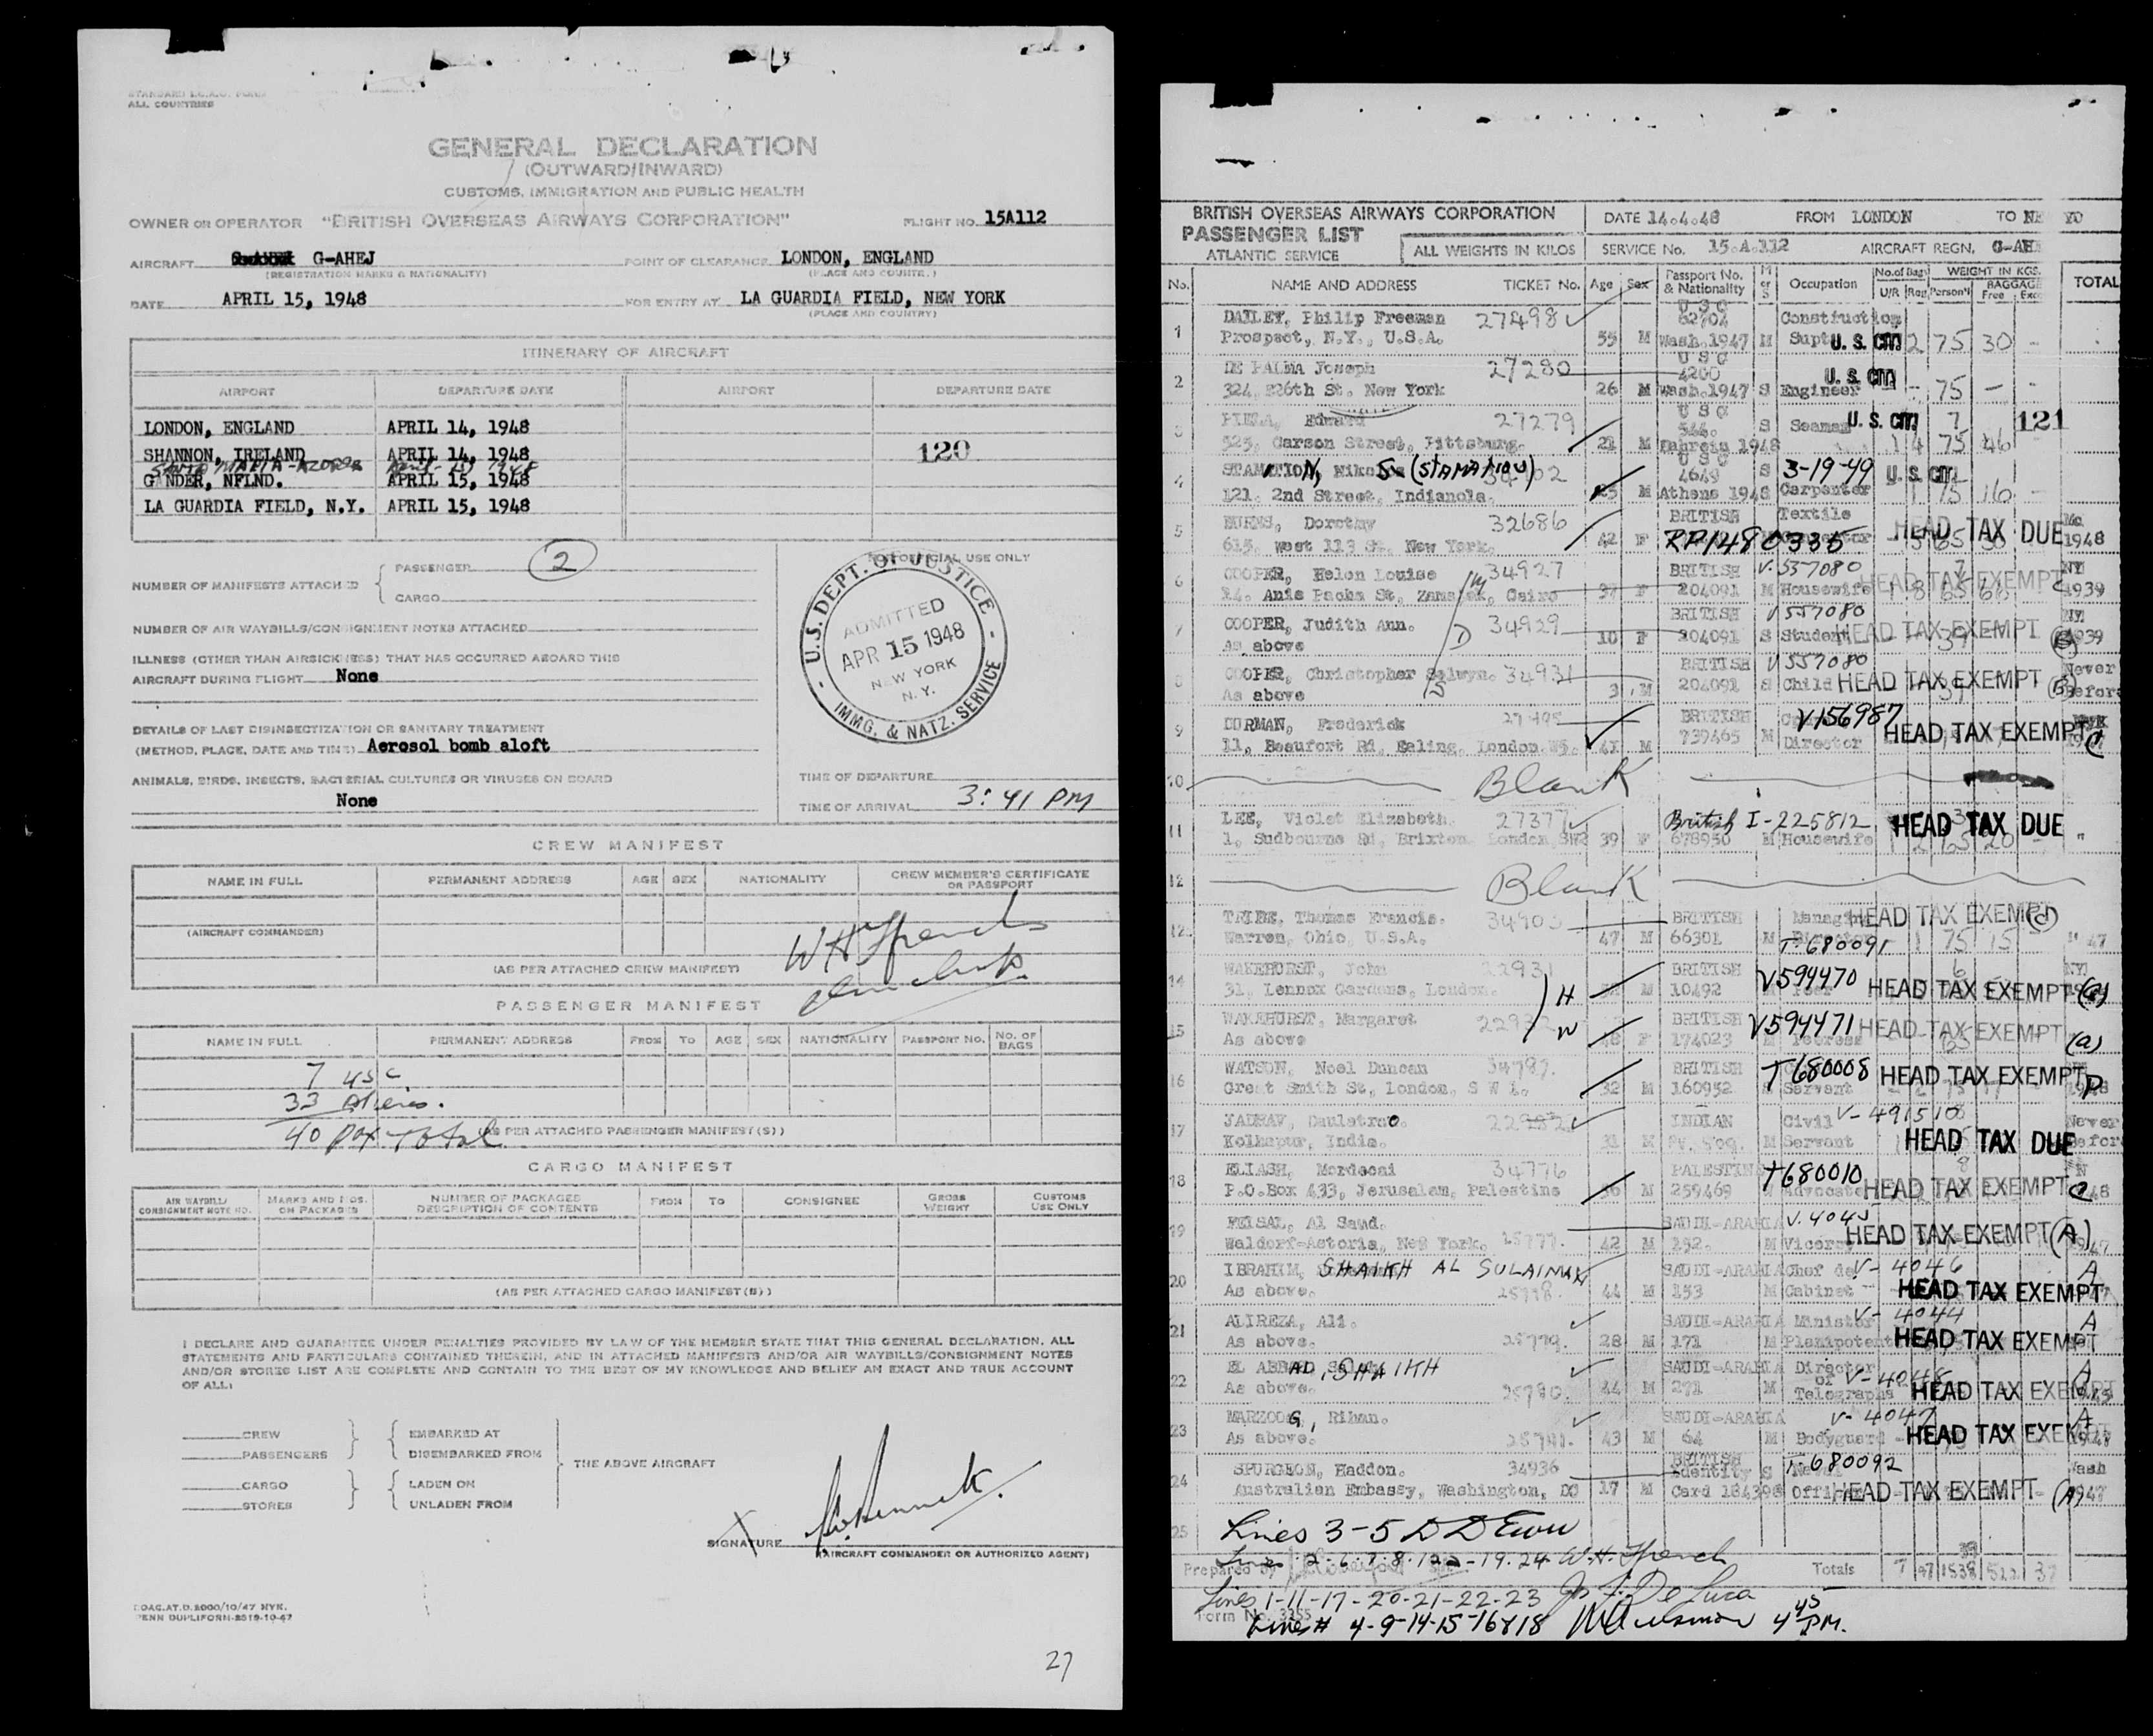 STANDARD I.C.A.O. FORM
ALL COUNTRIES
GENERAL DECLARATION
(OUTWARD/INWARD)
CUSTOMS, IMMIGRATION AND PUBLIC HEALTH
OWNER OR OPERATOR "BRITISH OVERSEAS AIRWAYS CORPORATION" FLIGHT NO. 15A112
AIRCRAFT G-AHEJ POINT OF CLEARANCE LONDON, ENGLAND
(REGISTRATION MARKS & NATIONALITY) (PLACE AND COUNTRY)
DATE APRIL 15, 1948 FOR ENTRY AT LA GUARDIA FIELD, NEW YORK
(PLACE AND COUNTRY)
ITINERARY OF AIRCRAFT
AIRPORT DEPARTURE DATE AIRPORT DEPARTURE DATE
LONDON, ENGLAND APRIL 14, 1948
SHANNON, IRELAND APRIL 14, 1948 120
SANTA MARIA-AZORES April-15 1948
GANDER, NFLND. APRIL 15, 1948
LA GUARDIA FIELD, N.Y. APRIL 15, 1948
NUMBER OF MANIFESTS ATTACHED
PASSENGER 2
CARGO
NUMBER OF AIR WAYBILLS/CONSIGNMENT NOTES ATTACHED
ILLNESS (OTHER THAN AIRSICKNESS) THAT HAS OCCURRED ABOARD THIS
AIRCRAFT DURING FLIGHT None
DETAILS OF LAST DISINSECTIZATION OR SANITARY TREATMENT
(METHOD, PLACE, DATE AND TIME) Aerosol bomb aloft
ANIMALS, BIRDS, INSECTS, BACTERIAL CULTURES OR VIRUSES ON BOARD
None
FOR OFFICIAL USE ONLY
U.S. DEPT. OF JUSTICE
ADMITTED
APR 15 1948
NEW YORK
N.Y.
IMMG. & NATZ. SERVICE
TIME OF DEPARTURE
TIME OF ARRIVAL 3:41 PM
CREW MANIFEST
NAME IN FULL PERMANENT ADDRESS AGE SEX NATIONALITY CREW MEMBER'S CERTIFICATE OR PASSPORT
(AIRCRAFT COMMANDER)
(AS PER ATTACHED CREW MANIFEST)
PASSENGER MANIFEST
NAME IN FULL PERMANENT ADDRESS FROM TO AGE SEX NATIONALITY PASSPORT NO. NO. OF BAGS
7 USC
33 Aliens.
40 Pax Total (AS PER ATTACHED PASSENGER MANIFEST(S))
CARGO MANIFEST
AIR WAYBILL/ CONSIGNMENT NOTE NO. MARKS AND NOS. ON PACKAGES NUMBER OF PACKAGES DESCRIPTION OF CONTENTS FROM TO CONSIGNEE GROSS WEIGHT CUSTOMS USE ONLY
(AS PER ATTACHED CARGO MANIFEST(S))
I DECLARE AND GUARANTEE UNDER PENALTIES PROVIDED BY LAW OF THE MEMBER STATE THAT THIS GENERAL DECLARATION, ALL
STATEMENTS AND PARTICULARS CONTAINED THEREIN, AND IN ATTACHED MANIFESTS AND/OR AIR WAYBILLS/CONSIGNMENT NOTES
AND/OR STORES LIST ARE COMPLETE AND CONTAIN TO THE BEST OF MY KNOWLEDGE AND BELIEF AN EXACT AND TRUE ACCOUNT
OF ALL:
CREW EMBARKED AT
PASSENGERS DISEMBARKED FROM
THE ABOVE AIRCRAFT
CARGO LADEN ON
STORES UNLADEN FROM
SIGNATURE
(AIRCRAFT COMMANDER OR AUTHORIZED AGENT)
27
BRITISH OVERSEAS AIRWAYS CORPORATION DATE 14.4.48 FROM LONDON TO
PASSENGER LIST
ATLANTIC SERVICE ALL WEIGHTS IN KILOS SERVICE No. 15.A.112 AIRCRAFT REGN. G-AH
No. NAME AND ADDRESS TICKET No. Age Sex Passport No. & Nationality M or S Occupation No. of Bags U/R Reg WEIGHT IN KGS. Person'l BAGGAGE Free Exc TOTAL
1 DAILEY, Philip Freeman 27498 USC 62704 Construction
Prospect, N.Y., U.S.A. 55 M Wash.1947 M Supt U.S. CITI 2 75 30 -
2 DE PALMA Joseph 27280 USC 4200 U.S. CITI
324, 226th St. New York 26 M Wash.1947 S Engineer 75 - -
3 Edward 27279 USC Seaman U.S. CITI 121
525, Carson Street, Pittsburg. 21 M Bahrein 1948 S 1 4 75 46
4 STAMATION, (STAMATIOU) USC 4649 3-19-49 U.S. CITI
121, 2nd Street, Indianola. M Athens 1948 S Carpenter 1 75 16 -
5 BURNS, Dorothy 32686 BRITISH Textile HEAD TAX DUE
615, West 113 St. New York. 42 F RP1480335 1948
6 COOPER, Helen Louise 34927 BRITISH V.557080 HEAD TAX EXEMPT NY
14. Anis Pacha St, Zamalek, Cairo 37 F 204091 M Housewife 1939
7 COOPER, Judith Ann. 34929 BRITISH V557080
As above D 10 F 204091 S Student HEAD TAX EXEMPT 1939
8 COOPER, Christopher Selwyn. 34931 BRITISH V557080 Never
As above S 3 M 204091 S Child HEAD TAX EXEMPT (B) Before
9 DORMAN, Frederick BRITISH V156987
11, Beaufort Rd, Ealing, London W5. 41 M 739465 M Director HEAD TAX EXEMPT C
10 Blank
11 LEE, Violet Elizabeth. 27377 British I-225812 HEAD TAX DUE
1, Sudbourne Rd, Brixton London SW2 39 F 678950 M Housewife 20
12 Blank
TRIBE, Thomas Francis. BRITISH Managing HEAD TAX EXEMPT
Warren, Ohio, U.S.A. 47 M 66301 M Director T.680091 1 75 15
14 WAKEHURST, John 22931 BRITISH V594470 HEAD TAX EXEMPT (a)
31, Lennox Gardens, London. H M 10492
15 WAKEHURST, Margaret BRITISH V594471 HEAD TAX EXEMPT (a)
As above W F 174023 M Peeress
16 WATSON, Noel Duncan 34787. BRITISH T680008 HEAD TAX EXEMPT
Great Smith St, London, S W 1. 32 M 160952 Servant
17 JADHAV, Daulatrao. INDIAN Civil V-491510 Never
Kolhapur, India. 31 M M Servant HEAD TAX DUE Before
18 ELIASH, Mordecai 34776 PALESTINE T680010
P.O.Box 433, Jerusalem, Palestine M 259469 Advocate HEAD TAX EXEMPT
19 FEISAL, Al Saud. SAUDI-ARABIA V.4045
Waldorf-Astoria, New York. 42 M 152. M Viceroy HEAD TAX EXEMPT (A) 1947
20 IBRAHIM, SHAIKH AL SULAIMAN SAUDI-ARABIA Chef de V-4046 A
As above. 44 M 153 M Cabinet HEAD TAX EXEMPT
21 ALIREZA, Ali. SAUDI-ARABIA Minister V-4044 A
As above. 25779. 28 M 171 M Plenipotent HEAD TAX EXEMPT
22 SHAIKH SAUDI-ARABIA Director of V-4048 A
As above. 25780. 44 M 271 M Telegraphs HEAD TAX EXEMPT
23 MARZOOG, Rihan. SAUDI-ARABIA V-4047 A
As above. 43 M 64 M Bodyguard HEAD TAX EXEMPT
24 SPURGEON, Haddon. 34936 BRITISH Identity S Naval T-680092 Wash
Australian Embassy, Washington, DC 17 M Card 184398 HEAD TAX EXEMPT (A) 1947
25 Lines 3-5
Prepared by Totals 7
Lines 1-11-17-20-21-22-23
Form No. 3255
Lines # 4-9-14-15-16 & 18 4 45 PM.